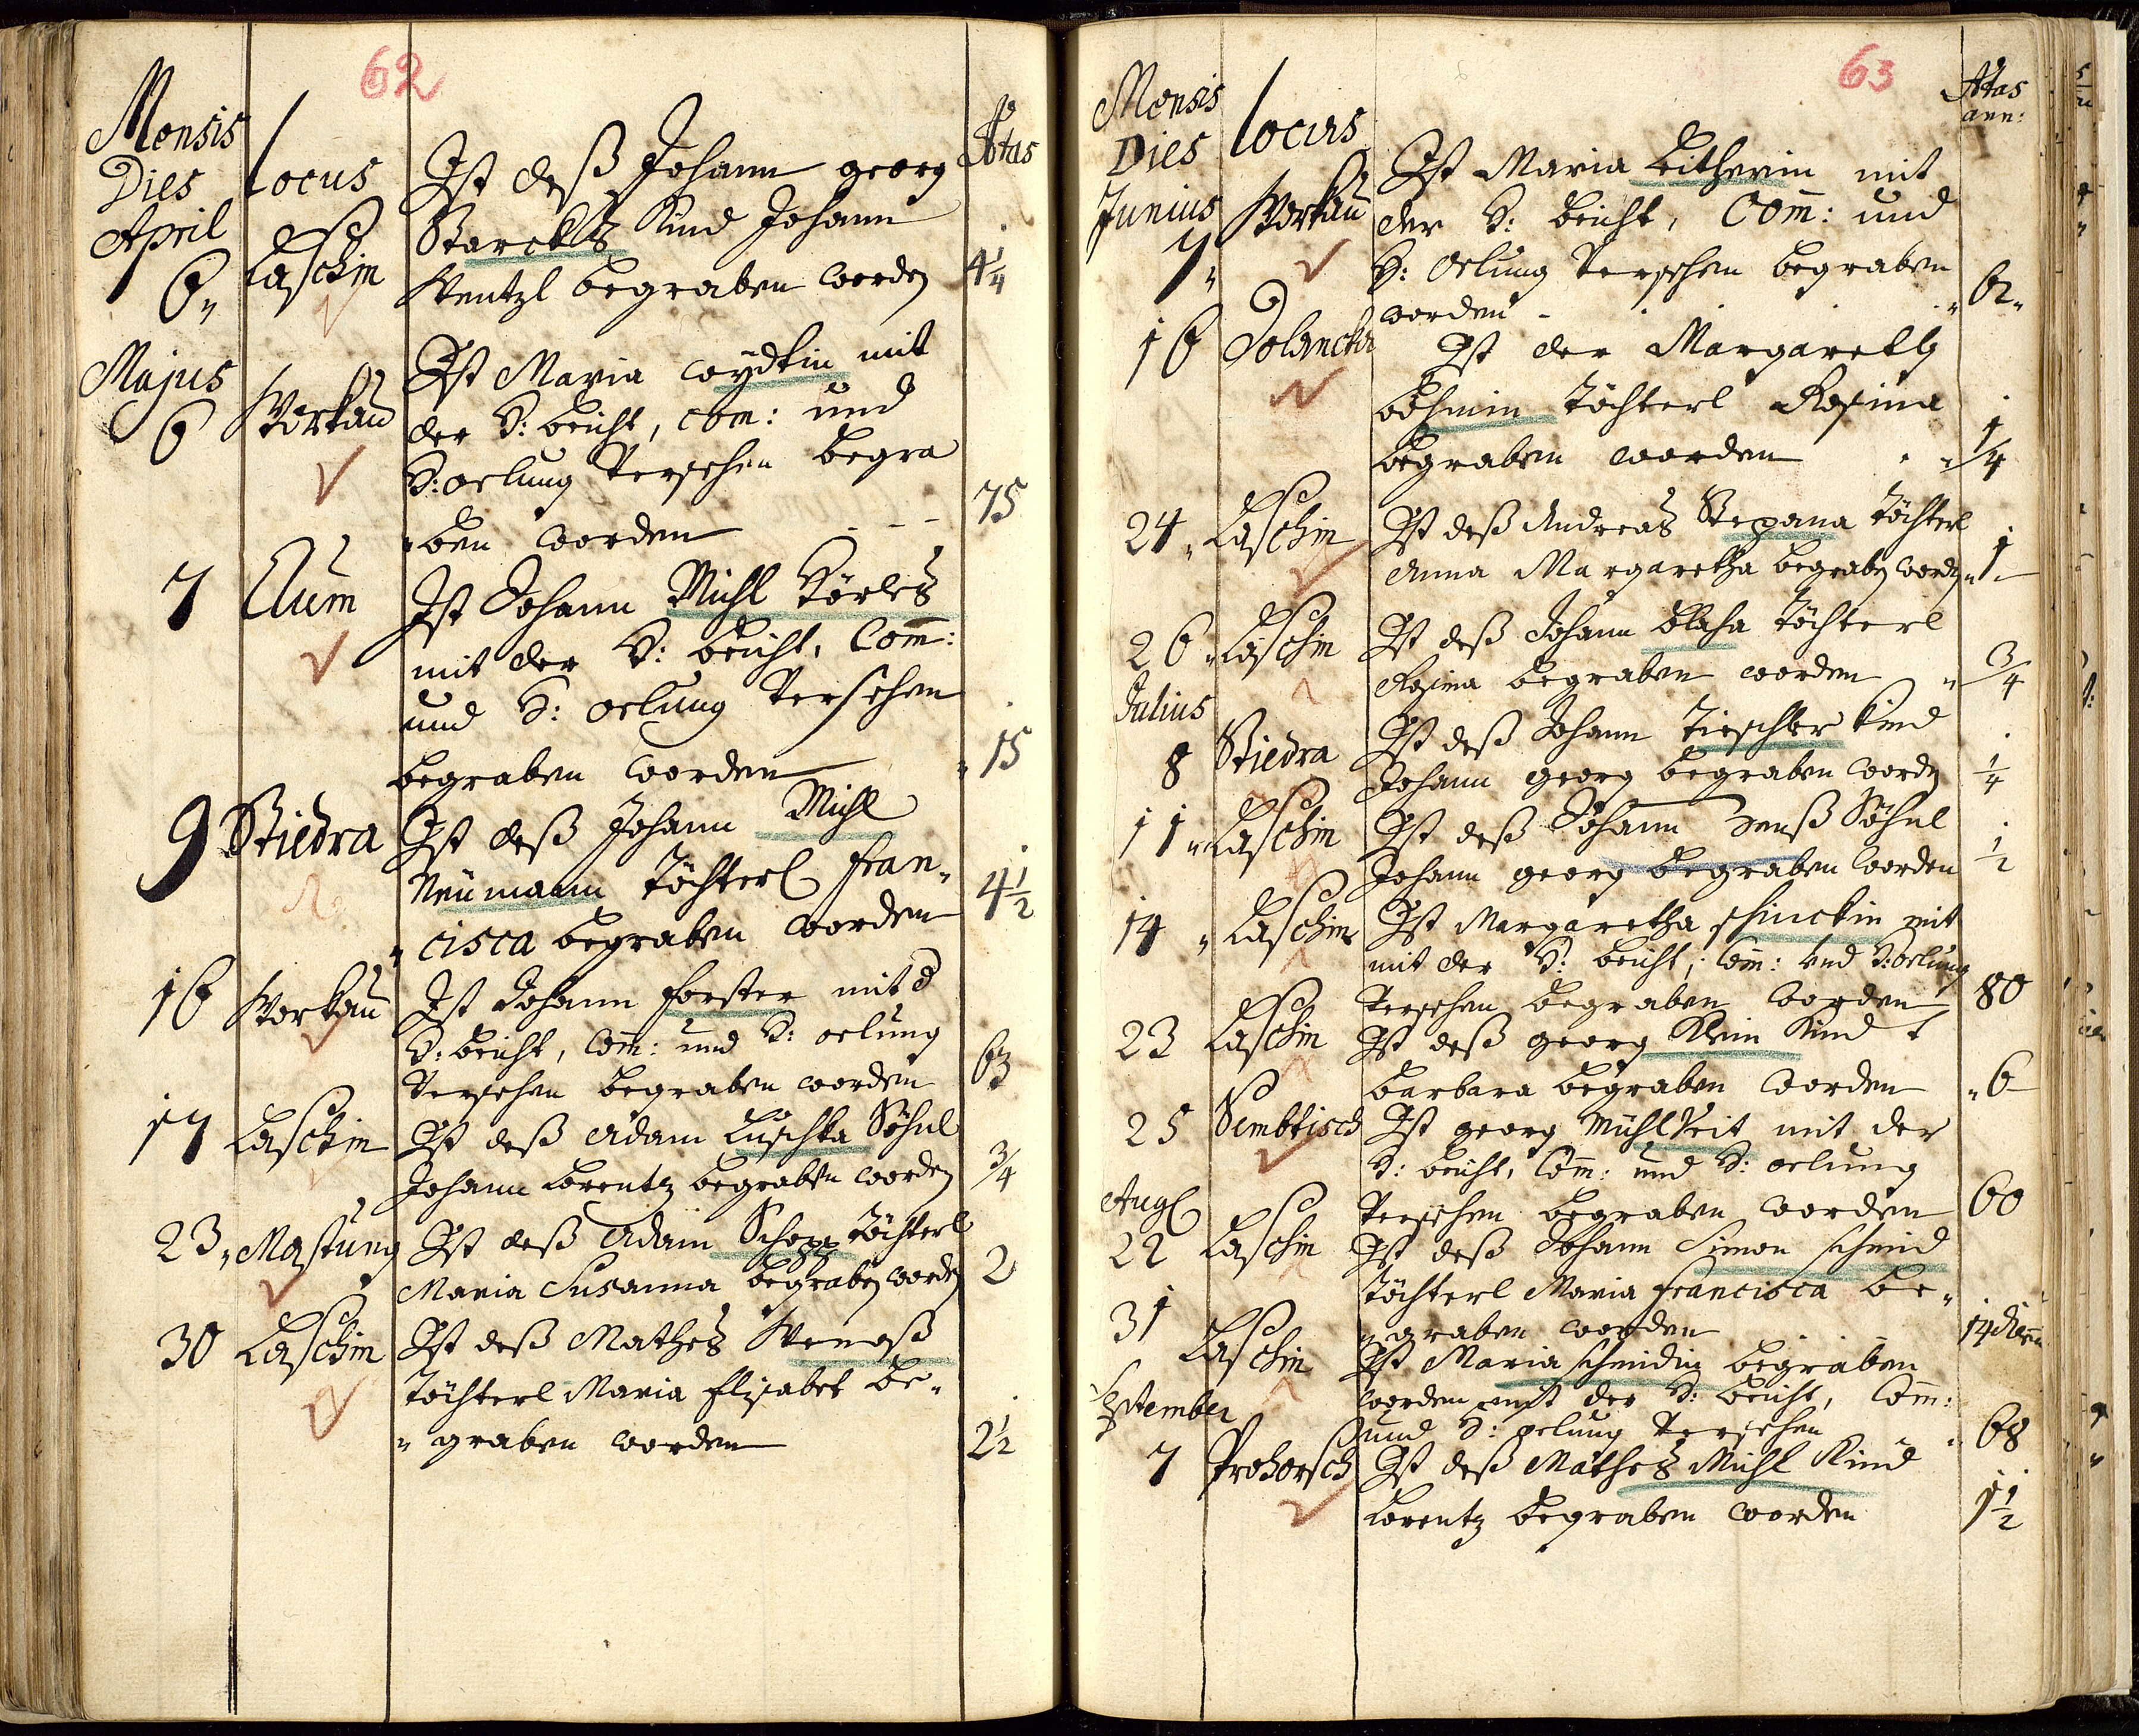 62
Mensis
Dies
locus
Ætas
April
6
Laschin
Ist deß Johann georg
Starckls Kind Johann
Wentzl begraben worden
4 1/4
Majus
6
Workau
Ist Maria woydkin mit
der H: beicht, Com: und
H: oelung Versehen begra
ben worden
75
7
Clum
Ist Johann Michl Körles
mit der H: beicht, Com:
und H: oelung Versehen
begraben worden
15
9
Stiedra
Ist deß Johann Michl
Neumann Töchterl Fran
cisca begraben worden
4 1/2
16
Workau
Ist Johann Forster mit d
H: beicht, Com: und H: oelung
Versehen begraben worden
63
17
Laschin
Ist deß Adam Luschka Söhnl
Johann Lorentz begraben worden
3/4
23
Mastung
Ist deß Adam Schopp Töchterl
Maria Susanna begraben worden
2
30
Laschin
Ist deß Mathes
Töchterl Maria Elisabet be
graben worden
2 1/2
63
Mensis
Dies
locus
Ætas
ann:
Junius
7
Workau
Ist Maria Leitherin mit
der H: beicht, Com: und
H: Oelung Versehen begraben
worden
62
16
Ist der Margareth
böhmin Töchterl Rosina
begraben worden
1/4
24
Laschin
Ist deß Andreas Stepana Töchterl
Anna Margaretha begraben worden
1
26
Laschin
Ist deß Johann Blaha Töchterl
Rosina begraben worden
3/4
Julius
8
Stiedra
Ist deß Johann Tieschler Kind
Johann georg begraben worden
1/4
11
Laschin
Ist deß Johann Zenß Söhnl
Johann georg begraben worden
1/2
14
Laschin
Ist Margaretha schinckin mit
mit der H: beicht, Com: und H: oelung
Versehen begraben worden
80
23
Laschin
Ist deß georg Klein Kind
barbara begraben worden
6
25
Sembtisch
Ist georg Mühl Veit mit der
H: beicht, Com: und H: oelung
Versehen begraben worden
60
Aug
22
Laschin
Ist deß Johann Simon schmid
Töchterl Maria Francisca be
graben worden
14 dierum
31
Laschin
Ist Maria schmidin begraben
worden mit der H: beicht, Com:
und H: oelung Versehen
68
September
7
Prohorsch
Ist deß Mathes Michl Kind
Lorentz begraben worden
1 1/2